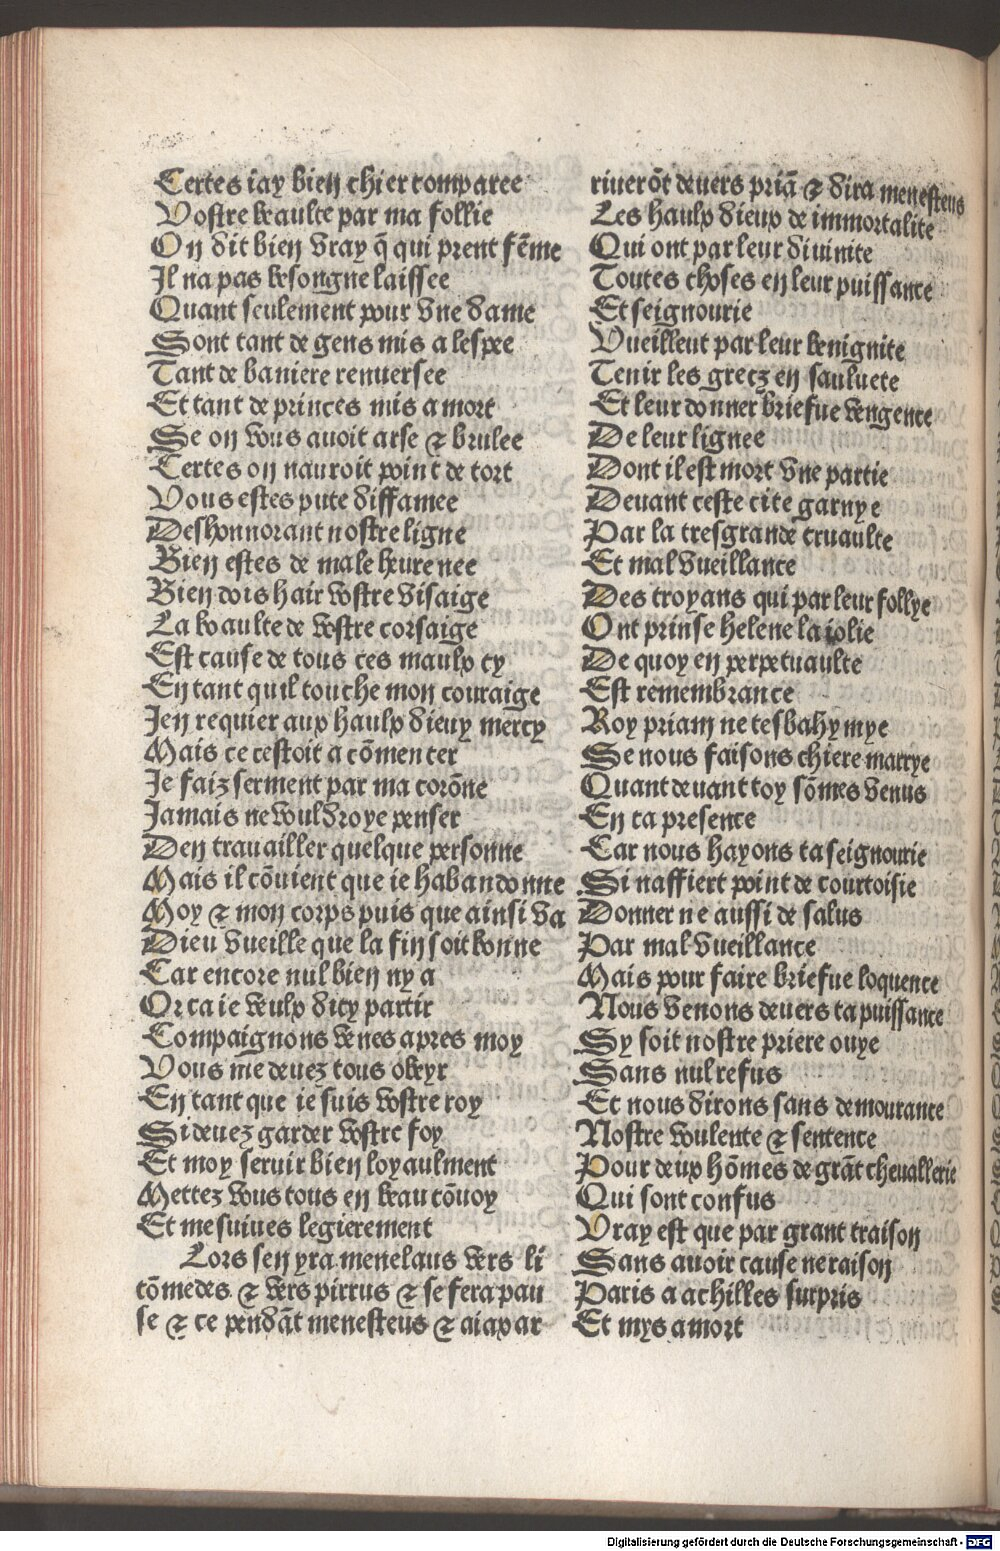 Certes iay bien chier comparee
Vostre beaulte par ma follie
On dit bien vray q̃ qui prent fẽme
Il na pas besongne laissee
Quant seulement pour vne dame
Sont tant de gens mis a lespee
Tant de baniere renuersee
Et tant de princes mis a mort
Se on vous auoit arse ⁊ brulee
Certes on nauroit point de tort
Vous estes pute diffamee
Deshonnorant nostre ligne
Bien estes de male heure nee
Bien dois hair vostre visaige
La boaulte de vostre corsaige
Est cause de tous ces maulx cy
En tant quil touche mon couraige
Jen requier aux haulx dieux mercy
Mais ce cestoit a cõmencer
Je faiz serment par ma corõne
Jamais ne vouldroye penser
Den trauailler quelque personne
Mais il cõuient que ie habandonne
Moy ⁊ mon corps puis que ainsi va
Dieu vueille que la fin soit bonne
Car encore nul bien ny a
Or ca ie veulx dicy partir
Compaignons venes apres moy
Vous me deuez tous obeyr
En tant que ie suis vostre roy
Si deuez garder vostre foy
Et moy seruir bien loyaulment
Mettez vous tous en beau cõuoy
Et me suiues legierement
Lors sen yra menelaus vers li
cõmedes ⁊ vers pirrus ⁊ se fera pau
se ⁊ ce pendãt menesteus ⁊ aiax ar
riuerõt deuers priã ⁊ dira menesteus
Les haulx dieux de immortalite
Qui ont par leur diuinite
Toutes choses en leur puissance
Et seignourie
Vueillent par leur benignite
Tenir les grecz en sauluete
Et leur donner briefue vengence
De leur lignee
Dont il est mort vne partie
Deuant ceste cite garnye
Par la tresgrande cruaulte
Et mal vueillance
Des troyans qui par leur follye
Ont prinse helene la iolie
De quoy en perpetuaulte
Est remembrance
Roy priam ne tesbahy mye
Se nous faisons chiere marrye
Quant deuant toy sõmes venus
En ta presence
Car nous hayons ta seignourie
Si naffiert point de courtoisie
Donner ne aussi de salus
Par mal vueillance
Mais pour faire briefue loquence
Nous venons deuers ta puissance
Sy soit nostre priere ouye
Sans nul refus
Et nous dirons sans demourance
Nostre voulente ⁊ sentence
Pour deux hõmes de grãt cheuallerie
Qui sont confus
Vray est que par grant traison
Sans auoir cause ne raison
Paris a achilles surpris
Et mys a mort
Digitalisierung gefördert durch die Deutsche Forschungsgemeinschaft - DFG